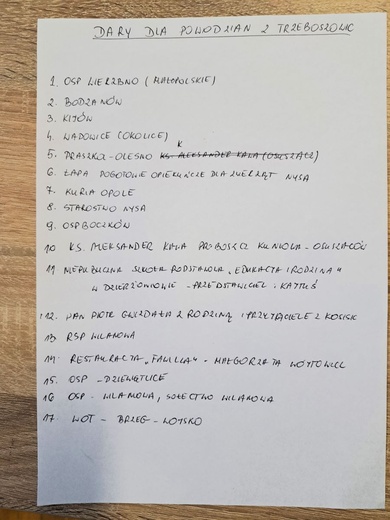 DARY DLA POWODZIAN Z TRZEBOSZOWIC
1. OSP WIERZBNO (MAŁOPOLSKIE)
2. BODZANÓW
3. KIJÓW
4. WADOWICE (OKOLICE)
5. PRASZKA-OLESNO KS. ALEKSANDER KAŁA (OSUSZACZ)
6. ŁAPA POGOTOWIE OPIEKUŃCZE DLA ZWIERZĄT NYSA
7. KURIA OPOLE
8. STAROSTWO NYSA
9. OSP BOCZKÓW
10 KS. ALEKSANDER KAŁA PROBOSZCZ - OSUSZACZÓW
11 NIEPUBLICZNA SZKOŁA PODSTAWOWA "EDUKACJA I RODZINA"
W DZIERŻONIOWIE - PRZEDSTAWICIEL:
12. PAN PIOTR Z RODZINĄ I PRZYJACIELE Z
13 RSP WILAMOWA
14. RESTAURACJA "FAMILIA" - MAŁGORZATA WÓJTOWICZ
15. OSP - DZIEWIĘTLICE
16 OSP - WILAMOWA, SOŁECTWO WILAMOWA
17. WOT - BRZEG - WOJSKO